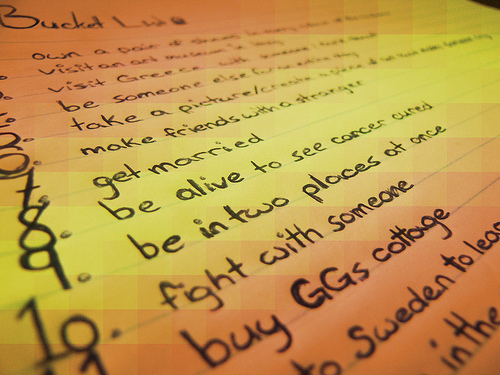 Bucket List
own a pair of shoes in every colour of
visit an art museum in
visit Greece with someone I
be someone else for an entire day
take a picture/create a
make friends with a stranger
get married
7. be alive to see cancer cured
8. be in two places at once
9. fight with someone
10. buy GGs cottage
to Sweden to
in the